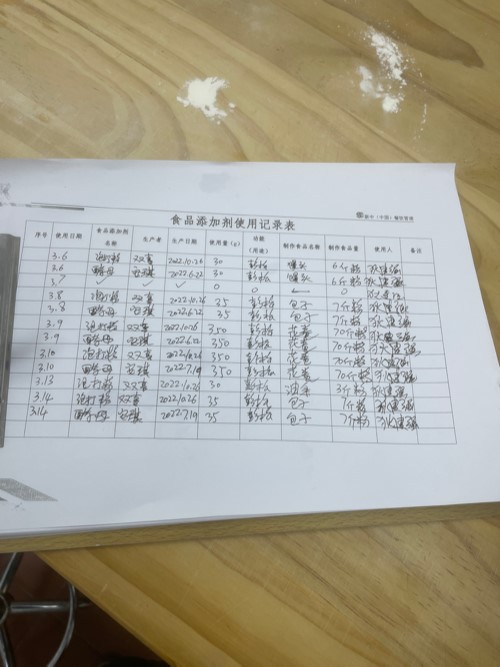 食品添加剂使用记录表
(中国)
序号 使用日期 食品添加剂名称 生产者 生产日期 使用量(g) 功能(用途) 制作食品名称 制作食品量 使用人 备注
3.6 泡打粉 双喜 2022.10.26 30 膨松 馒头 6斤粉
3.6 酵母 安琪 2022.6.22 30 膨松 馒头 6斤粉
3.7 ✓ ✓ ✓ 0 0 0
3.8 泡打粉 双喜 2022.10.26 35 膨松 包子 7斤粉
3.8 酵母 安琪 2022.6.22 35 膨松 包子 7斤粉
3.9 泡打粉 双喜 2022.10.26 350 膨松 花卷 70斤粉
3.9 酵母 安琪 2022.6.22 350 膨松 花卷 70斤粉
3.10 泡打粉 双喜 2022.10.26 350 膨松 花卷 70斤粉
3.10 酵母 安琪 2022.7.19 350 膨松 花卷 70斤粉
3.13 泡打粉 双喜 2022.10.26 30 膨松 油条 3斤粉
3.14 泡打粉 双喜 2022.10.26 35 膨松 包子 7斤粉
3.14 酵母 安琪 2022.7.19 35 膨松 包子 7斤粉